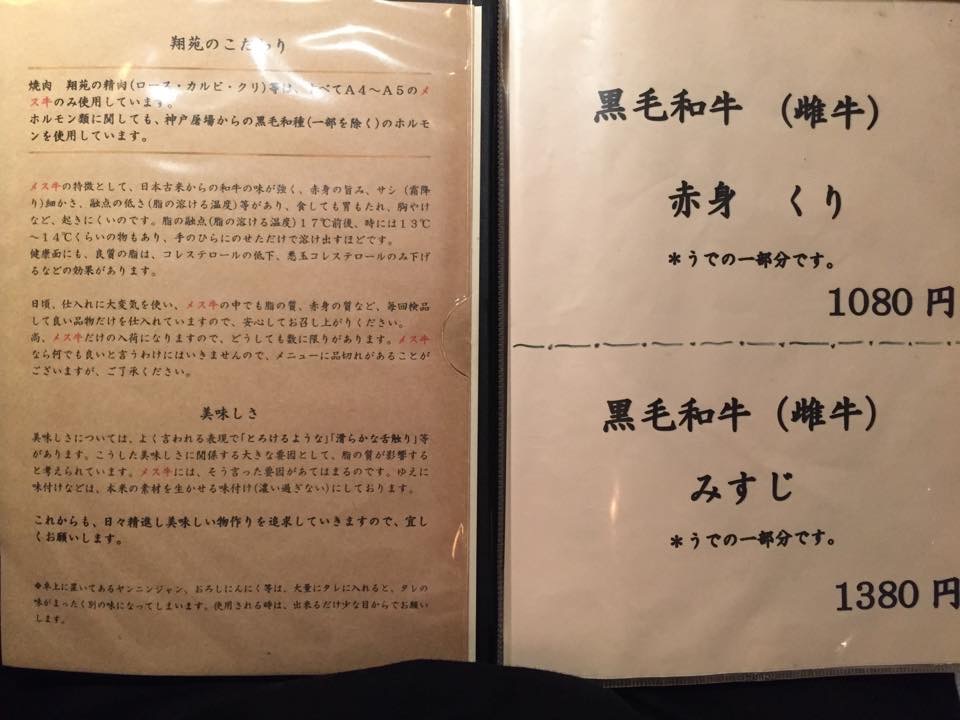 翔苑のこだわり
焼肉　翔苑の精肉(ロース・カルビ・クリ)等は、すべてA4～A5のメ
ス牛のみ使用しています。
ホルモン類に関しても、神戸屠場からの黒毛和種(一部を除く)のホルモ
ンを使用しています。
メス牛の特徴として、日本古来からの和牛の味が強く、赤身の旨み、サシ(霜降
り)細かさ、融点の低さ(脂の溶ける温度)等があり、食しても胃もたれ、胸やけ
など、起きにくいのです。脂の融点(脂の溶ける温度)17℃前後、時には13℃
～14℃くらいの物もあり、手のひらにのせただけで溶け出すほどです。
健康面にも、良質の脂は、コレステロールの低下、悪玉コレステロールのみ下げ
るなどの効果があります。
日頃、仕入れに大変気を使い、メス牛の中でも脂の質、赤身の質など、毎回検品
して良い品物だけを仕入れていますので、安心してお召し上がりください。
尚、メス牛だけの入荷になりますので、どうしても数に限りがあります。メス牛
なら何でも良いと言うわけにはいきませんので、メニューに品切れがあることが
ございますが、ご了承ください。
美味しさ
美味しさについては、よく言われる表現で「とろけるような」「滑らかな舌触り」等
があります。こうした美味しさに関係する大きな要因として、脂の質が影響する
と考えられています。メス牛には、そう言った要因があてはまるのです。ゆえに
味付けなどは、本来の素材を生かせる味付け(濃い過ぎない)にしております。
これからも、日々精進し美味しい物作りを追求していきますので、宜し
くお願いします。
※卓上に置いてあるヤンニンジャン、おろしにんにく等は、大量にタレに入れると、タレの
味がまったく別の味になってしまいます。使用される時は、出来るだけ少な目からでお願い
します。
黒毛和牛　(雌牛)
赤身　くり
＊うでの一部分です。
1080円
黒毛和牛　(雌牛)
みすじ
＊うでの一部分です。
1380円